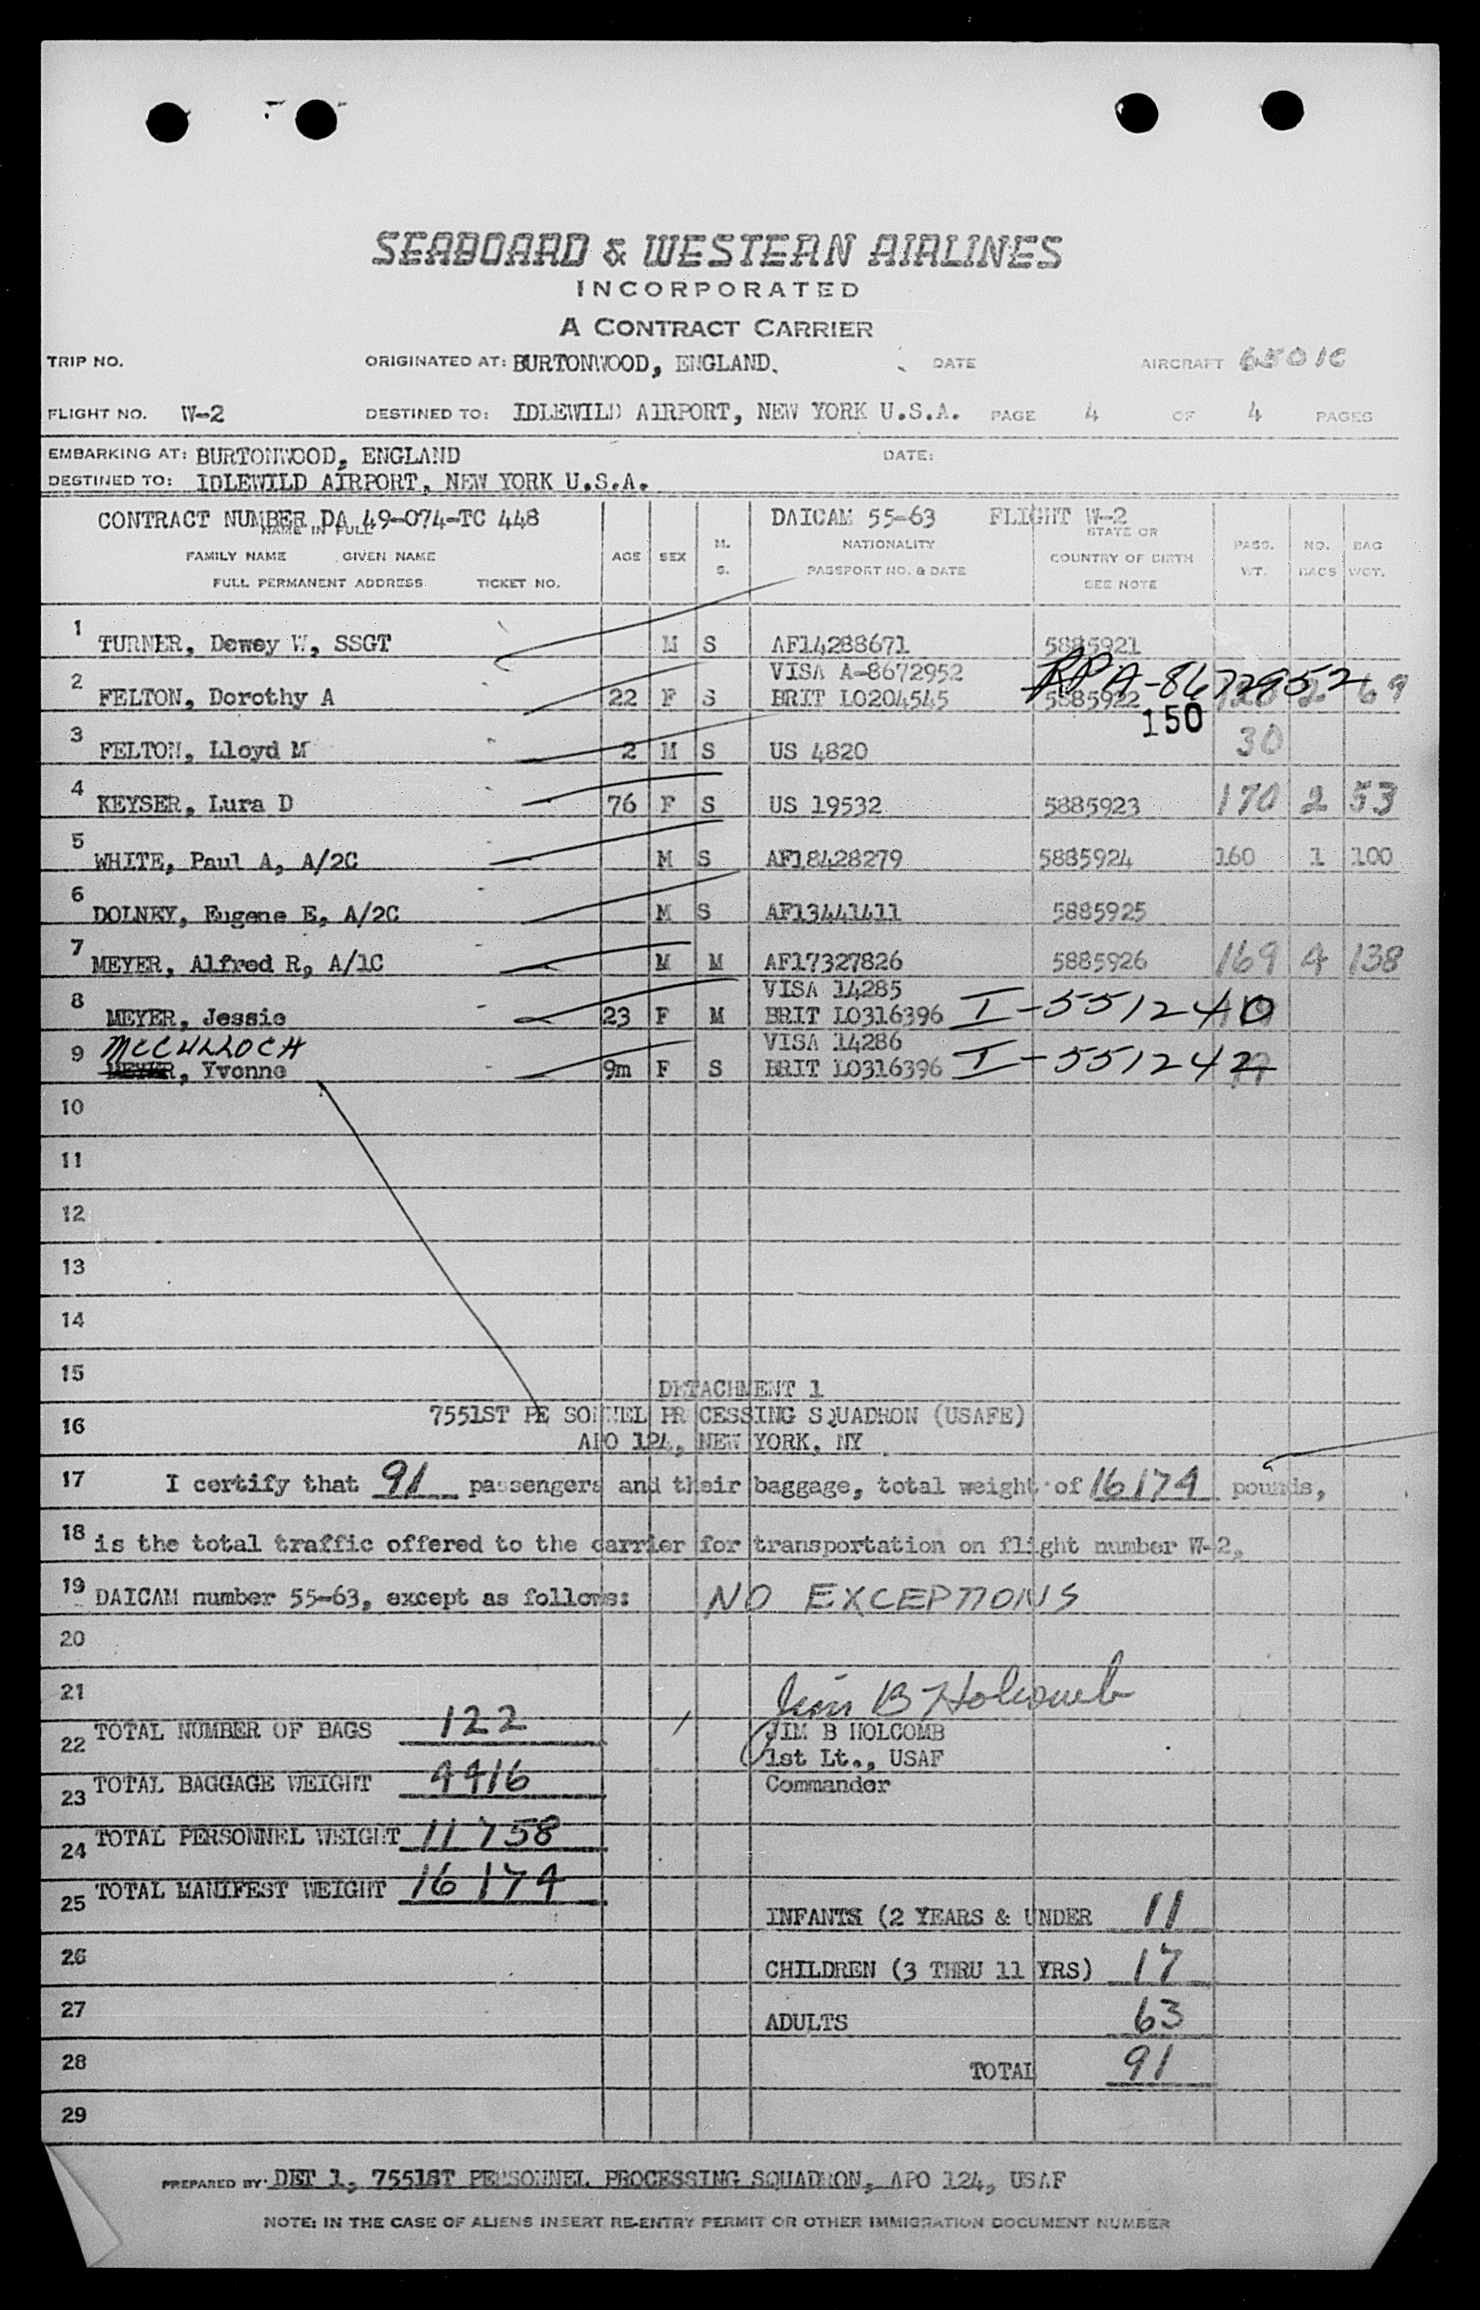 SEABOARD & WESTERN AIRLINES
INCORPORATED
A CONTRACT CARRIER
TRIP NO. ORIGINATED AT: BURTONWOOD, ENGLAND. DATE AIRCRAFT 6501C
FLIGHT NO. W-2 DESTINED TO: IDLEWILD AIRPORT, NEW YORK U.S.A. PAGE 4 OF 4 PAGES
EMBARKING AT: BURTONWOOD, ENGLAND DATE:
DESTINED TO: IDLEWILD AIRPORT, NEW YORK U.S.A.
CONTRACT NUMBER DA 49-074-TC 448 DAICAM 55-63 FLIGHT W-2
NAME IN FULL STATE OR
FAMILY NAME GIVEN NAME AGE SEX M. S. NATIONALITY COUNTRY OF BIRTH PASS. NO. BAG
FULL PERMANENT ADDRESS TICKET NO. PASSPORT NO. & DATE SEE NOTE WT. BAGS WGT.
1 TURNER, Dewey W, SSGT M S AF14288671 5885921
VISA A-8672952 RPA-8672952
2 FELTON, Dorothy A 22 F S BRIT LO204545 5885922 2 69
150
3 FELTON, Lloyd M 2 M S US 4820 30
4 KEYSER, Lura D 76 F S US 19532 5885923 170 2 53
5 WHITE, Paul A, A/2C M S AF18428279 5885924 160 1 100
6 DOLNEY, Eugene E, A/2C M S AF13441411 5885925
7 MEYER, Alfred R, A/1C M M AF17327826 5885926 169 4 138
VISA 14285
8 MEYER, Jessie 23 F M BRIT LO316396 I-551240
McCULLOCH VISA 14286
9 MEYER, Yvonne 9m F S BRIT LO316396 I-551242
10
11
12
13
14
15
DETACHMENT 1
16 7551ST PE SONNEL PR CESSING SQUADRON (USAFE)
APO 124, NEW YORK, NY
17 I certify that 91 passengers and their baggage, total weight of 16174 pounds,
18 is the total traffic offered to the carrier for transportation on flight number W-2,
19 DAICAM number 55-63, except as follows: NO EXCEPTIONS
20
21 Jim B Holcomb
22 TOTAL NUMBER OF BAGS 122 JIM B HOLCOMB
1st Lt., USAF
23 TOTAL BAGGAGE WEIGHT 4416 Commander
24 TOTAL PERSONNEL WEIGHT 11758
25 TOTAL MANIFEST WEIGHT 16174
INFANTS (2 YEARS & UNDER 11
26 CHILDREN (3 THRU 11 YRS) 17
27 ADULTS 63
28 TOTAL 91
29
PREPARED BY: DET 1, 7551ST PERSONNEL PROCESSING SQUADRON, APO 124, USAF
NOTE: IN THE CASE OF ALIENS INSERT RE-ENTRY PERMIT OR OTHER IMMIGRATION DOCUMENT NUMBER